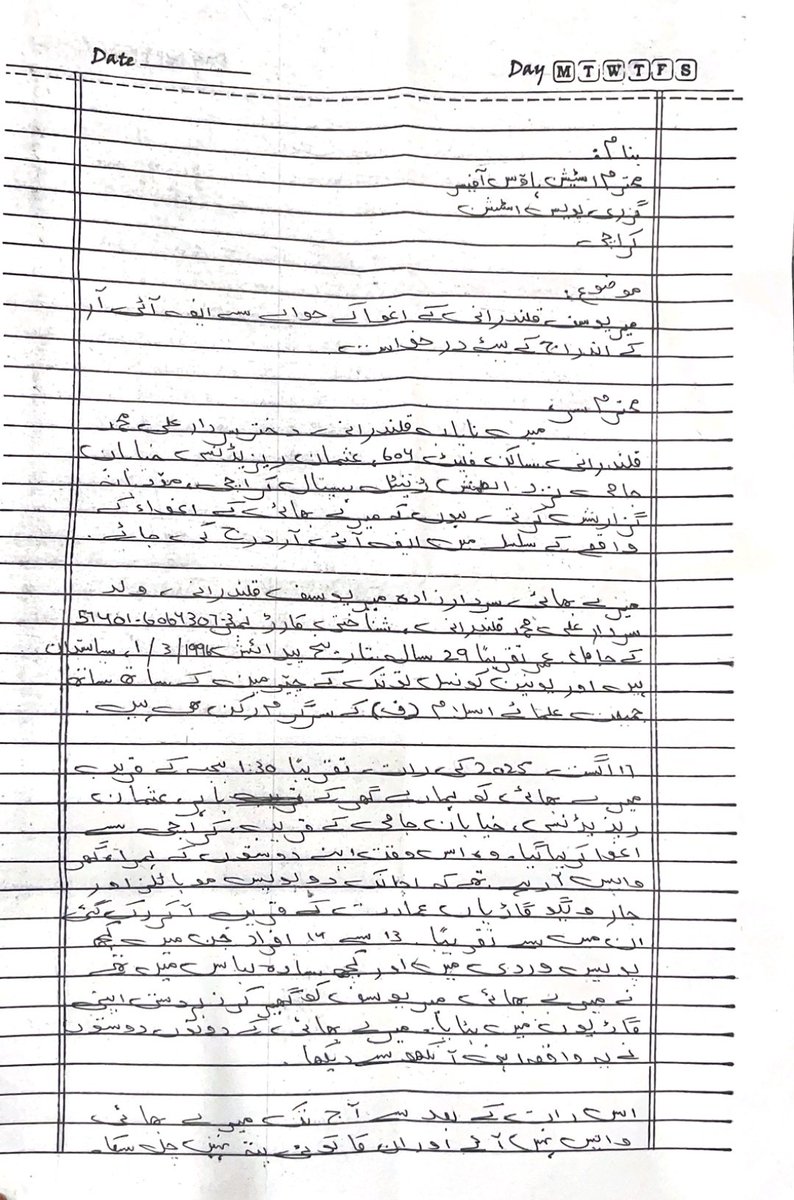 Date
Day M T W T F S
بنام:
محترم اسٹیش ہاؤس آفیسر
گزری پولیس اسٹیش
کراچی
موضوع:
میر یوسف قلندرانی کے اغوا کے حوالے سے ایف آئی آر
کے اندراج کے لئے درخواست
محترم سر،
میں نایاب قلندرانی دختر سردار علی محمد
قلندرانی ساکن فلیٹ 604، عثمان ریزیڈنسی خیابان
جامی نزد ڈینٹل ہسپتال کراچی، مؤدبانہ
گزاریش کرتی ہوں کہ میرے بھائی کے اغواء کے
واقعے کے سلسلے میں ایف آئی آر درج کی جائے۔
میرے بھائی سردار زادہ میر یوسف قلندرانی ولد
سردار علی محمد قلندرانی، شناختی کارڈ نمبر
کے حامل عمر تقریبًا 29 سال، تاریخ پیدائش 1/3/1996، سیاستدان
ہیں اور یونین کونسل توتک کے چیئرمین کے ساتھ ساتھ
جمیعت علمائے اسلام (ف) کے سرگرم رکن بھی ہیں۔
اگست 2025 کی رات تقریبًا 1:30 بجے کے قریب
میرے بھائی کو ہمارے گھر کے باہر، عثمان
ریزیڈنسی، خیابان جامی کے قریب، کراچی سے
اغوا کیا گیا۔ وہ اس وقت اپنے دوستوں کے ہمراہ گھر
واپس آرہے تھے کہ اچانک دو پولیس موبائلز اور
چار ویگو گاڑیاں عمارت کے قریب آ کر رک گئی
ان میں سے تقریبًا 13 سے 14 افراد جن میں کچھ
پولیس وردی میں اور کچھ سادہ لباس میں تھے
نے میرے بھائی میر یوسف کو گھیر کر زبردستی اپنی
گاڑیوں میں بٹایا۔ میرے بھائی کے دونوں دوستوں
نے یہ واقعہ اپنی آنکھوں سے دیکھا۔
اس رات کے بعد سے آج تک میرے بھائی
واپس نہیں آئے اور ان کا کوئی پتہ نہیں چل سکا۔